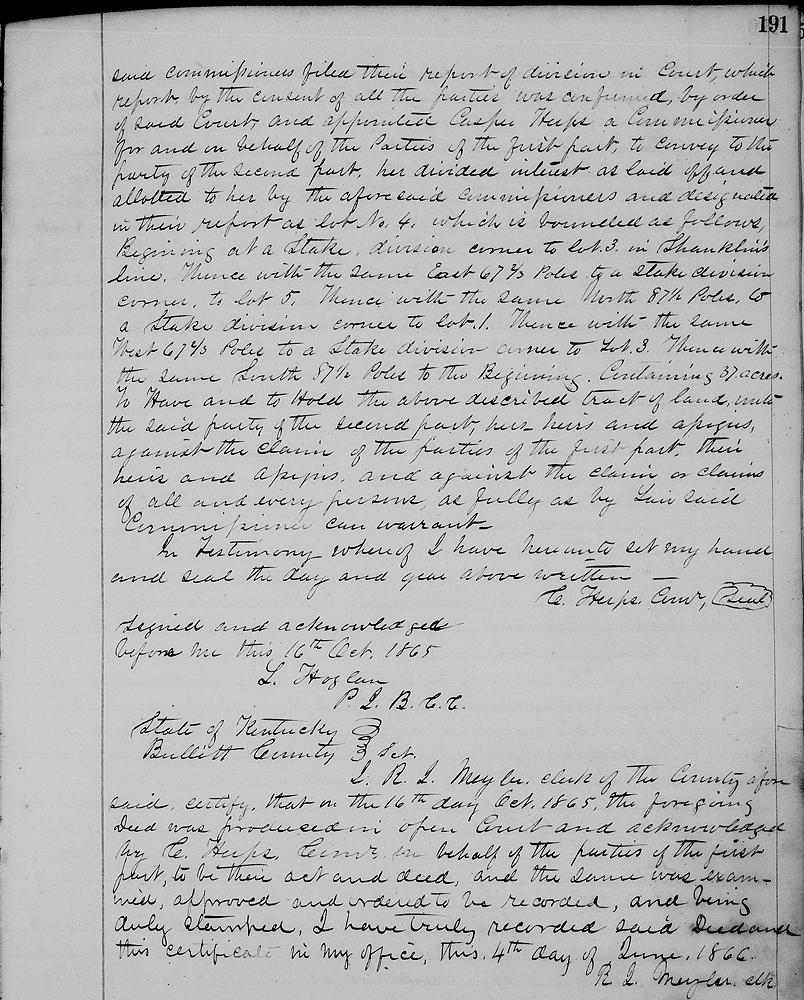 191
said commissioners filed their report of division in Court, which
report, by the consent of all the parties was confirmed, by order
of said Court, and appointed Casper Herps a Commissioner
for and on behalf of the Parties of the first part, to convey to the
party of the second part, her divided interest as laid off and
allotted to her by the aforesaid commissioners and designated
in their report as lot No. 4. which is bounded as follows,
Begining at a Stake, division corner to lot. 3. in Shanklin's
line. Thence with the same East 67 2/3 Poles to a stake division
corner, to lot 5. Thence with the same North 87 1/2 Poles, to
a Stake division corner to Lot. 1. Thence with the same
West 67 2/3 Poles to a Stake division corner to Lot. 3. Thence with
the same South 87 1/2 Poles to the Begining. Containing 37 acres.
To Have and to Hold the above described tract of land, unto
the said party of the second part, her heirs and assigns,
against the claim of the parties of the first part, their
heirs and assigns, and against the claim or claims
of all and every persons, as fully as by Law said
Commissioner can warrant—
In Testimony whereof I have hereunto set my hand
and seal the day and year above written —
C. Herps. Comr, Seal
Signed and acknowledged
before me this 16th Oct. 1865
L. Hoglan
P. J. B. C. C.
State of Kentucky
Bullitt County Sct.
I. R. J. Meyler. clerk of the County afore
said, certify, that on the 16th day Oct. 1865, the foregoing
Deed was produsedin open Court and acknowledged
by C. Herps, Comr. on behalf of the parties of the first
part, to be their act and deed, and the same was exam-
ined, approved and ordered to be recorded, and being
duly stamped, I have truly recorded said Deed and
this certificate in my office, this. 4th day of June, 1866.
R. J. Meyler. clk